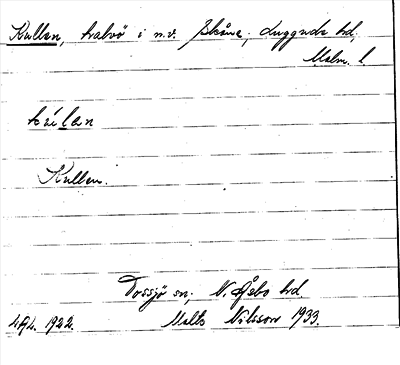 Kullen, halvö i n.v. Skåne, Luggude hd,
Malm. l.
kúlan
Kullen.
Tossjö sn, N. Åsbo hd.
1922. Malte Nilsson 1933.